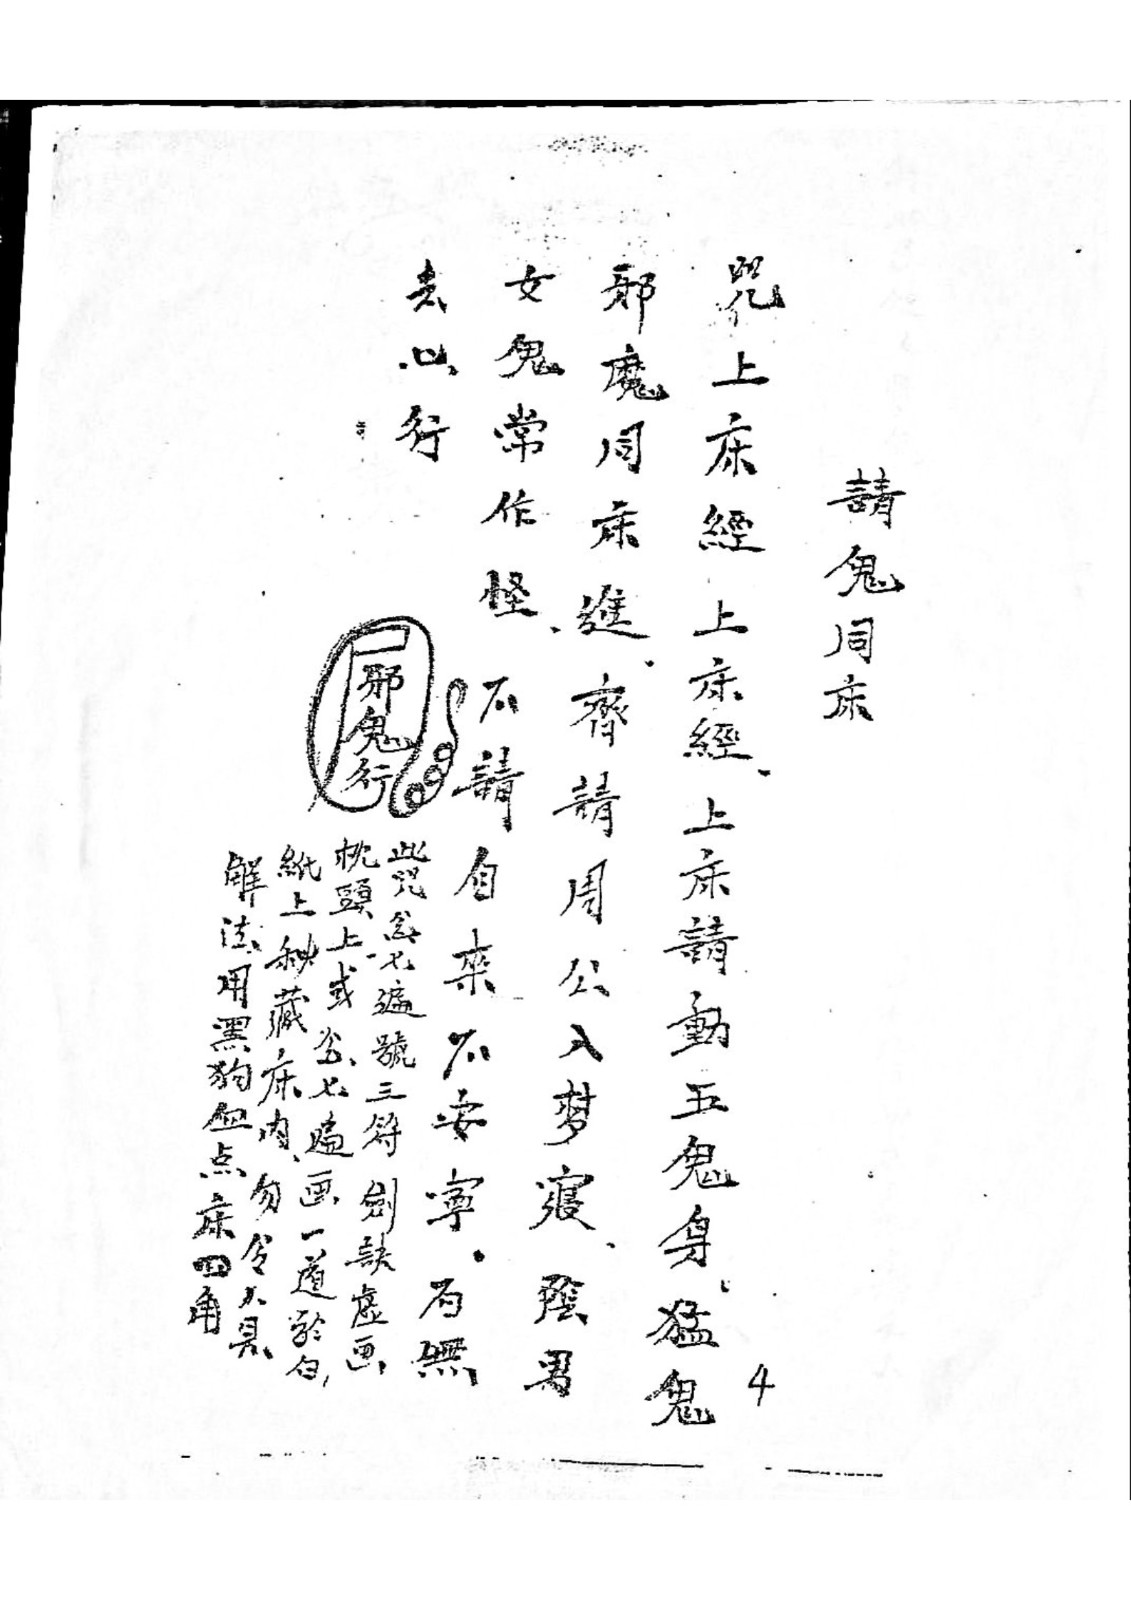 請鬼同床
咒上床經上床經、上床請動五鬼身、猛鬼
邪魔同床進、齊請周公入梦寢、陰男
女鬼常作怪、不請自来不安寧。有無
去以行
邪鬼行
此咒念七遍號三符劍訣虛画
枕頭上或念七遍画一道於白
紙上秘藏床内、勿令人見
解法用黑狗血点床四角
4